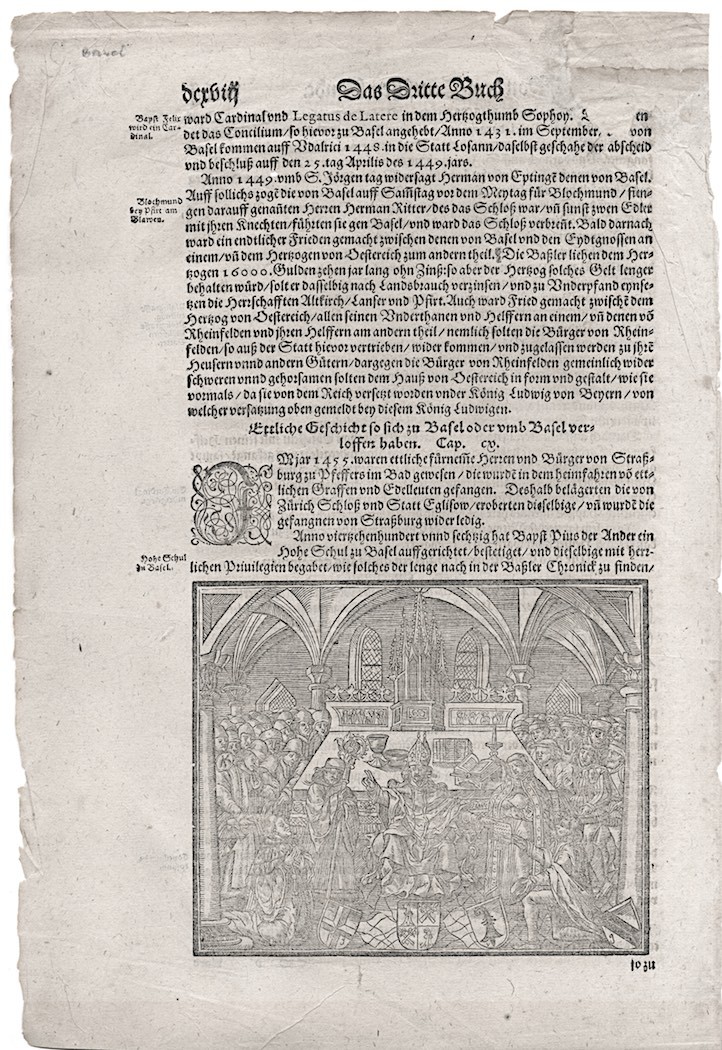 Basel
dcxviij
Das Dritte Buch
Bapst Felix
wird ein Car-
dinal.
ward Cardinal vnd Legatus de Latere in dem Hertzogthumb Sophoy. en
det das Concilium/so hievor zu Basel angehebt/Anno 1431. im September, von
Basel kommen auff Vdalrici 1448. in die Statt Losann/daselbst geschahe der abscheid
vnd beschluß auff den 25. tag Aprilis des 1449. jars.
Anno 1449. vmb S. Jörgen tag widersagt Herman von Eptingē denen von Basel.
Auff sollichs zogē die von Basel auff Samstag vor dem Meytag für Blochmund/fien-
Blochmund
bey Pfirt am
Blawen.
gen darauff genañten Herren Herman Ritter/des das Schloß war/vñ sunst zwen Edler
mit jhren Knechten/führten sie gen Basel/vnd ward das Schloß verbreñt. Bald darnach
ward ein endtlicher Frieden gemacht zwischen denen von Basel vnd den Eydtgnossen an
einem/vñ dem Hertzogen von Oestereich zum andern theil. Die Baßler liehen dem Her-
tzogen 16000. Gulden zehen jar lang ohn Zinß: so aber der Hertzog solches Gelt lenger
behalten würd/solt er dasselbig nach Landsbrauch verzinsen/vnd zu Vnderpfand eynse-
tzen die Herrschafften Altkirch/Lanser vnd Pfirt. Auch ward Fried gemacht zwischē dem
Hertzog von Oestereich/allen seinen Vnderthanen vnd Helffern an einem/vñ denen vō
Rheinfelden vnd jhren Helffern am andern theil/nemlich solten die Bürger von Rhein-
felden/so auß der Statt hievor vertrieben/wider kommen/vnd zugelassen werden zu jhrē
Heusern vnnd andern Gütern/dargegen die Bürger von Rheinfelden gemeinlich wider
schweren vnnd gehorsamen solten dem Hauß von Oestereich in form vnd gestalt/wie sie
vormals/da sie von dem Reich versetzt worden vnder König Ludwig von Beyern/von
welcher versatzung oben gemeldt bey diesem König Ludwigen.
Ettliche Geschicht so sich zu Basel oder vmb Basel ver-
loffen haben. Cap. cx.
JM jar 1455. waren ettliche fürneme Herren vnd Bürger von Straß-
burg zu Pfeffers im Bad gewesen/die wurdē in dem heimfahren vō ett-
lichen Graffen vnd Edelleuten gefangen. Deshalb belägerten die von
Zürich Schloß vnd Statt Eglisow/eroberten dieselbige/vñ wurdē die
gefangnen von Straßburg wider ledig.
Anno viertzehenhundert vnnd sechtzig hat Bapst Pius der Ander ein
Hohe Schul
zu Basel.
Hohe Schul zu Basel auffgerichtet/bestetiget/vnd dieselbige mit herr-
lichen Privilegien begabet/wie solches der lenge nach in der Baßler Chronick zu finden/
so zu